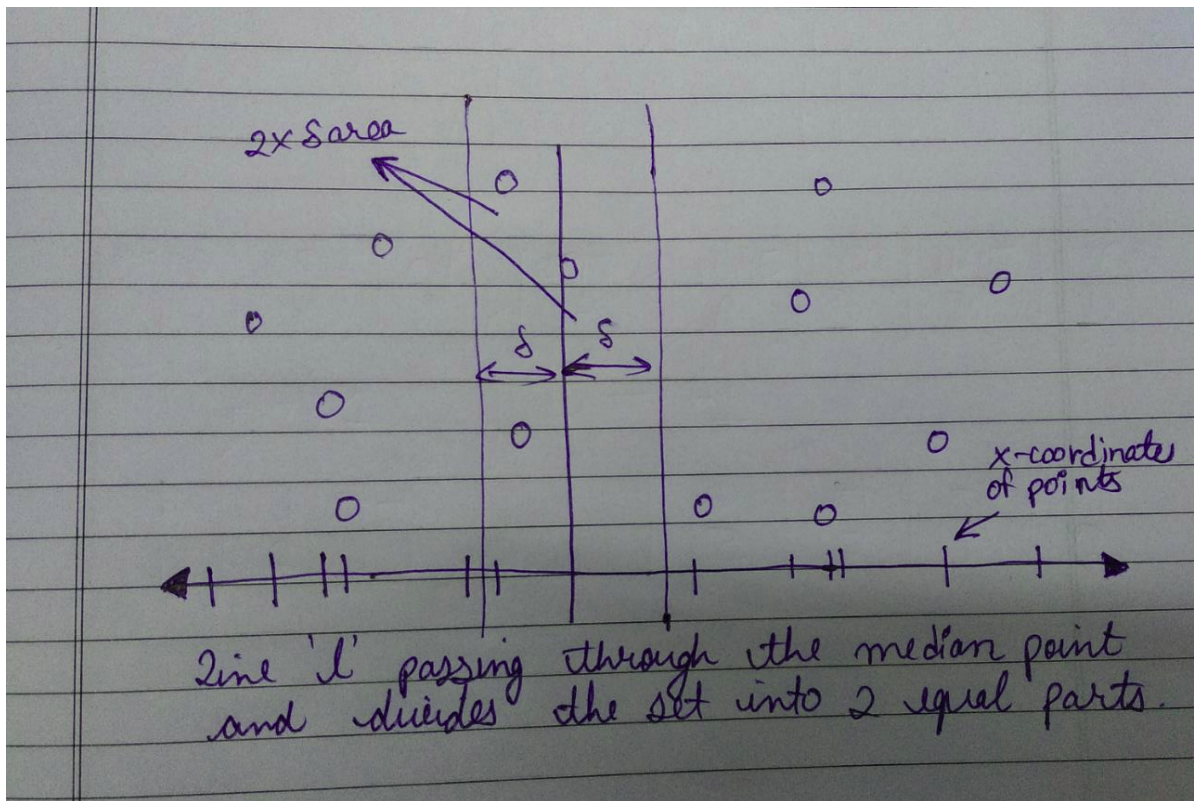 2x δ area
δ
δ
x-coordinates
of points
Line 'l' passing through the median point
and divides the set into 2 equal parts.